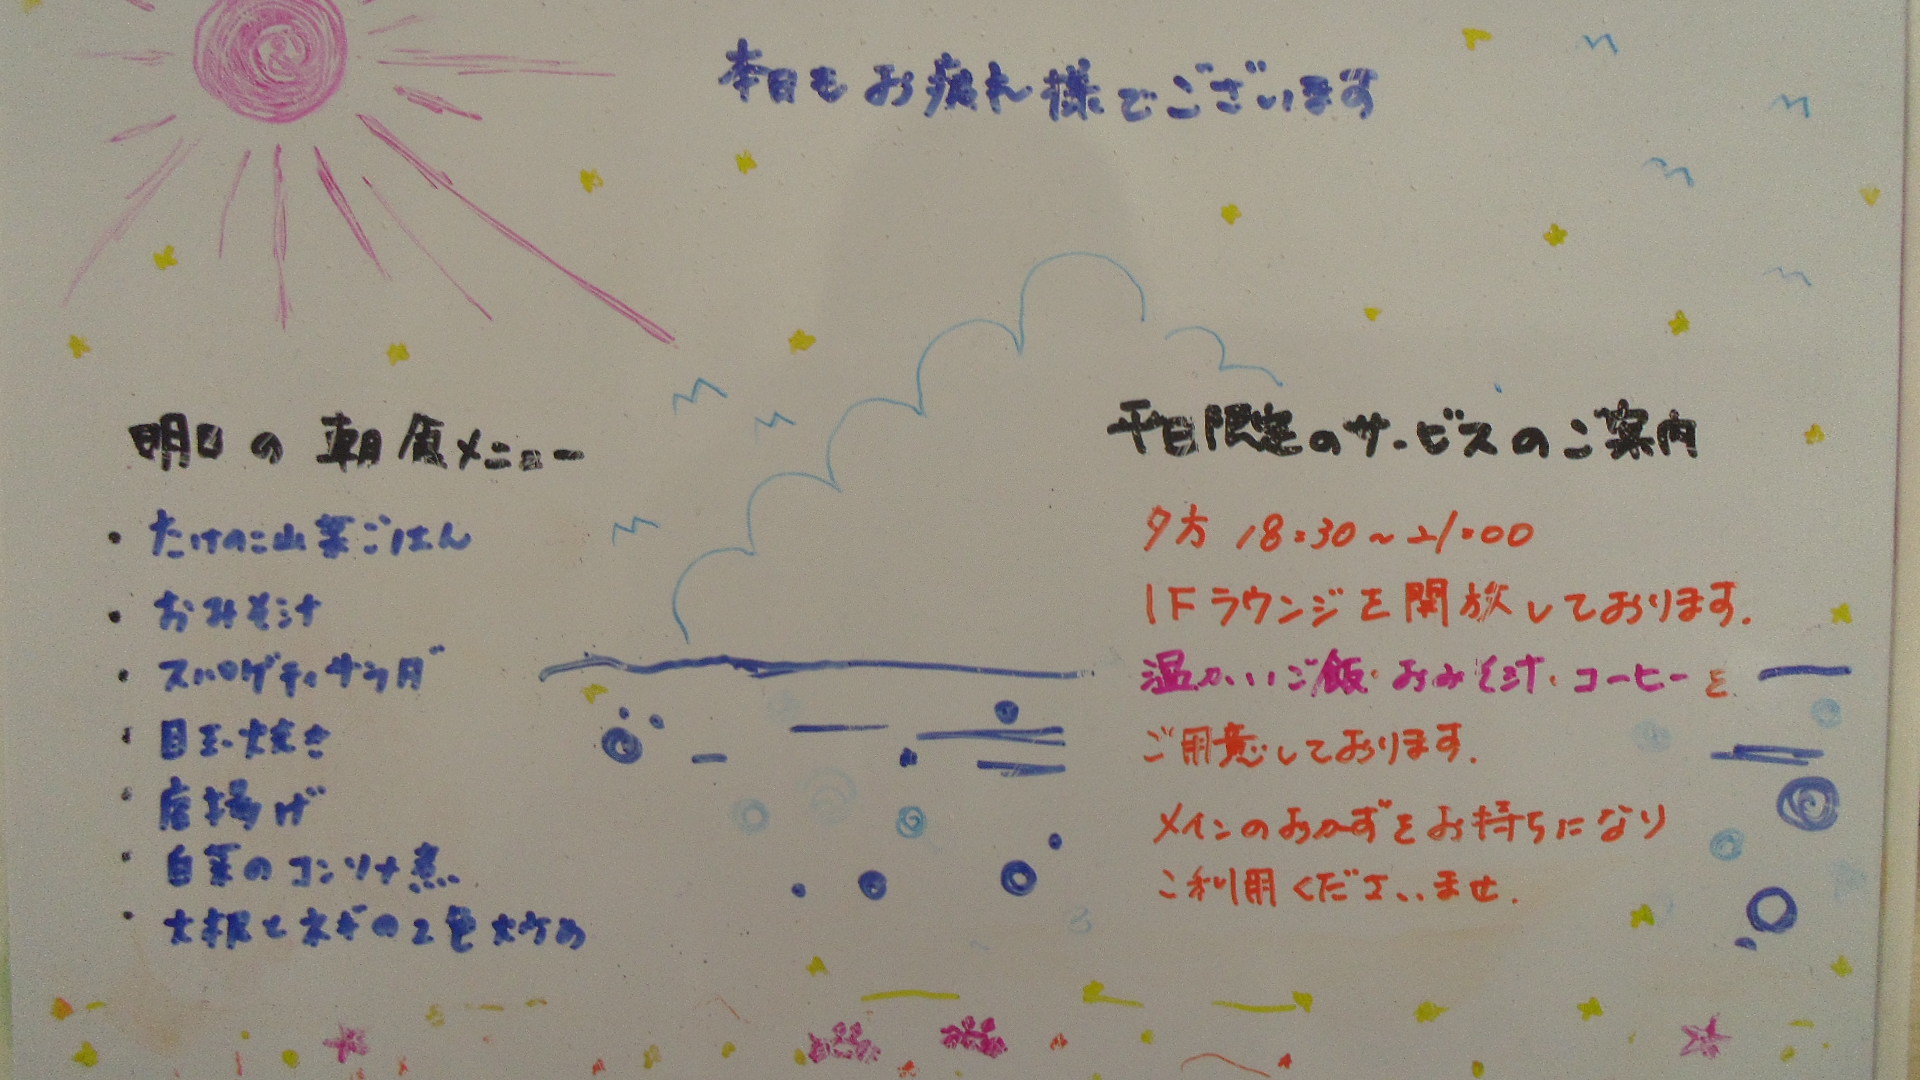 本日もお疲れ様でございます
明日の朝食メニュー
・たけのこ山菜ごはん
・おみそ汁
・スパゲティサラダ
・目玉焼き
・唐揚げ
・白菜のコンソメ煮
・大根とネギの2色炒め
平日限定のサービスのご案内
夕方 18:30~21:00
1Fラウンジを開放しております.
温かいご飯・おみそ汁・コーヒーを
ご用意しております.
メインのおかずをお持ちになり
ご利用くださいませ.